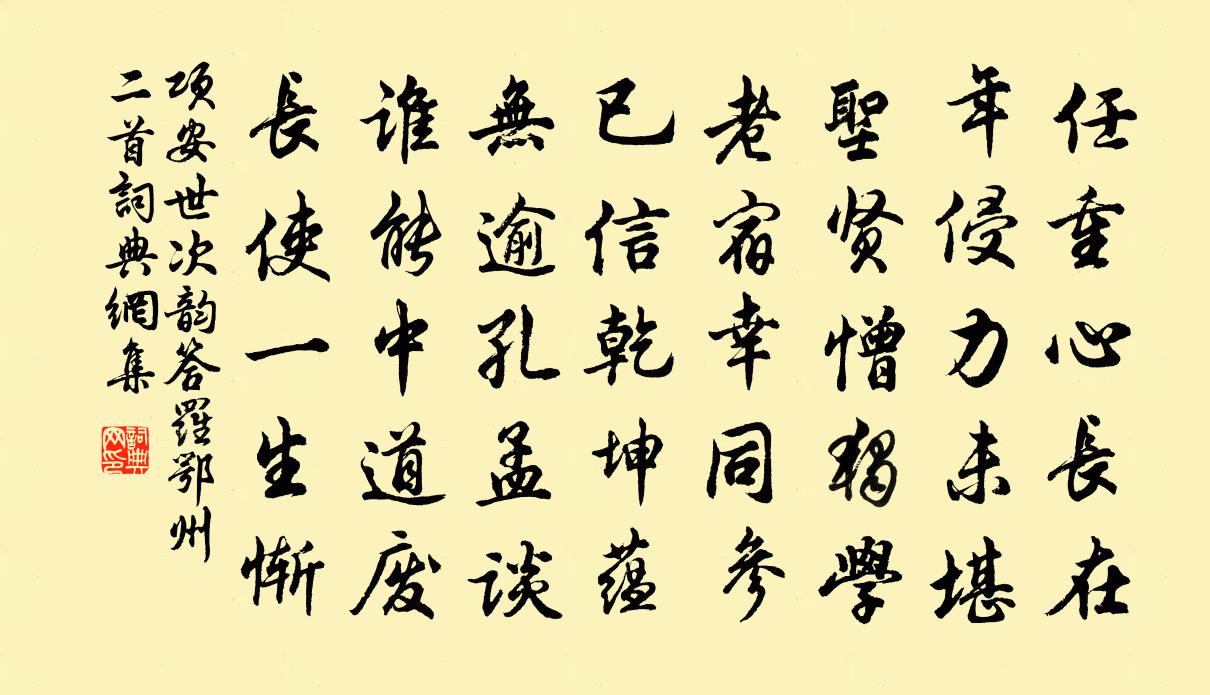 任重心長在
年侵力未堪
聖賢憎獨學
老宿幸同參
已信乾坤蘊
無逾孔孟談
誰能中道廢
長使一生慚
項安世次韵答羅鄂州
二首詞典網集
詞典
网印